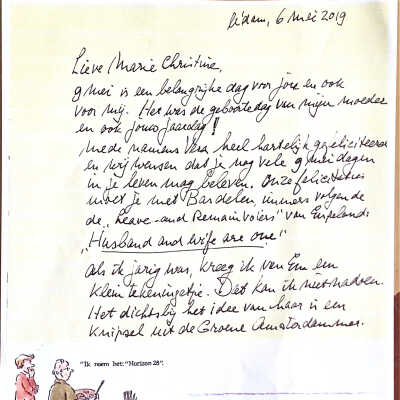 A'dam, 6 mei 2019
Lieve Marie Christine,
9 mei is een belangrijke dag voor jou en ook
voor mij. Het was de geboortedag van mijn moeder
en ook jouw jaardag!
mede namens Vera heel hartelijk gefeliciteerd
en wij wensen dat je nog vele 9 mei dagen
in je leven mag beleven. Onze felicitaties
moet je met Bas delen immers volgende
de „Leave-and Remain voters" van Engeland:
„Husband and wife are one"
Als ik jarig was, kreeg ik van Em een
klein tekeningetje. Dat kan ik niet nadoen.
Het dichtst bij het idee van haar is een
knipsel uit de Groene Amsterdammer.
"Ik noem het: 'Horizon 28'."